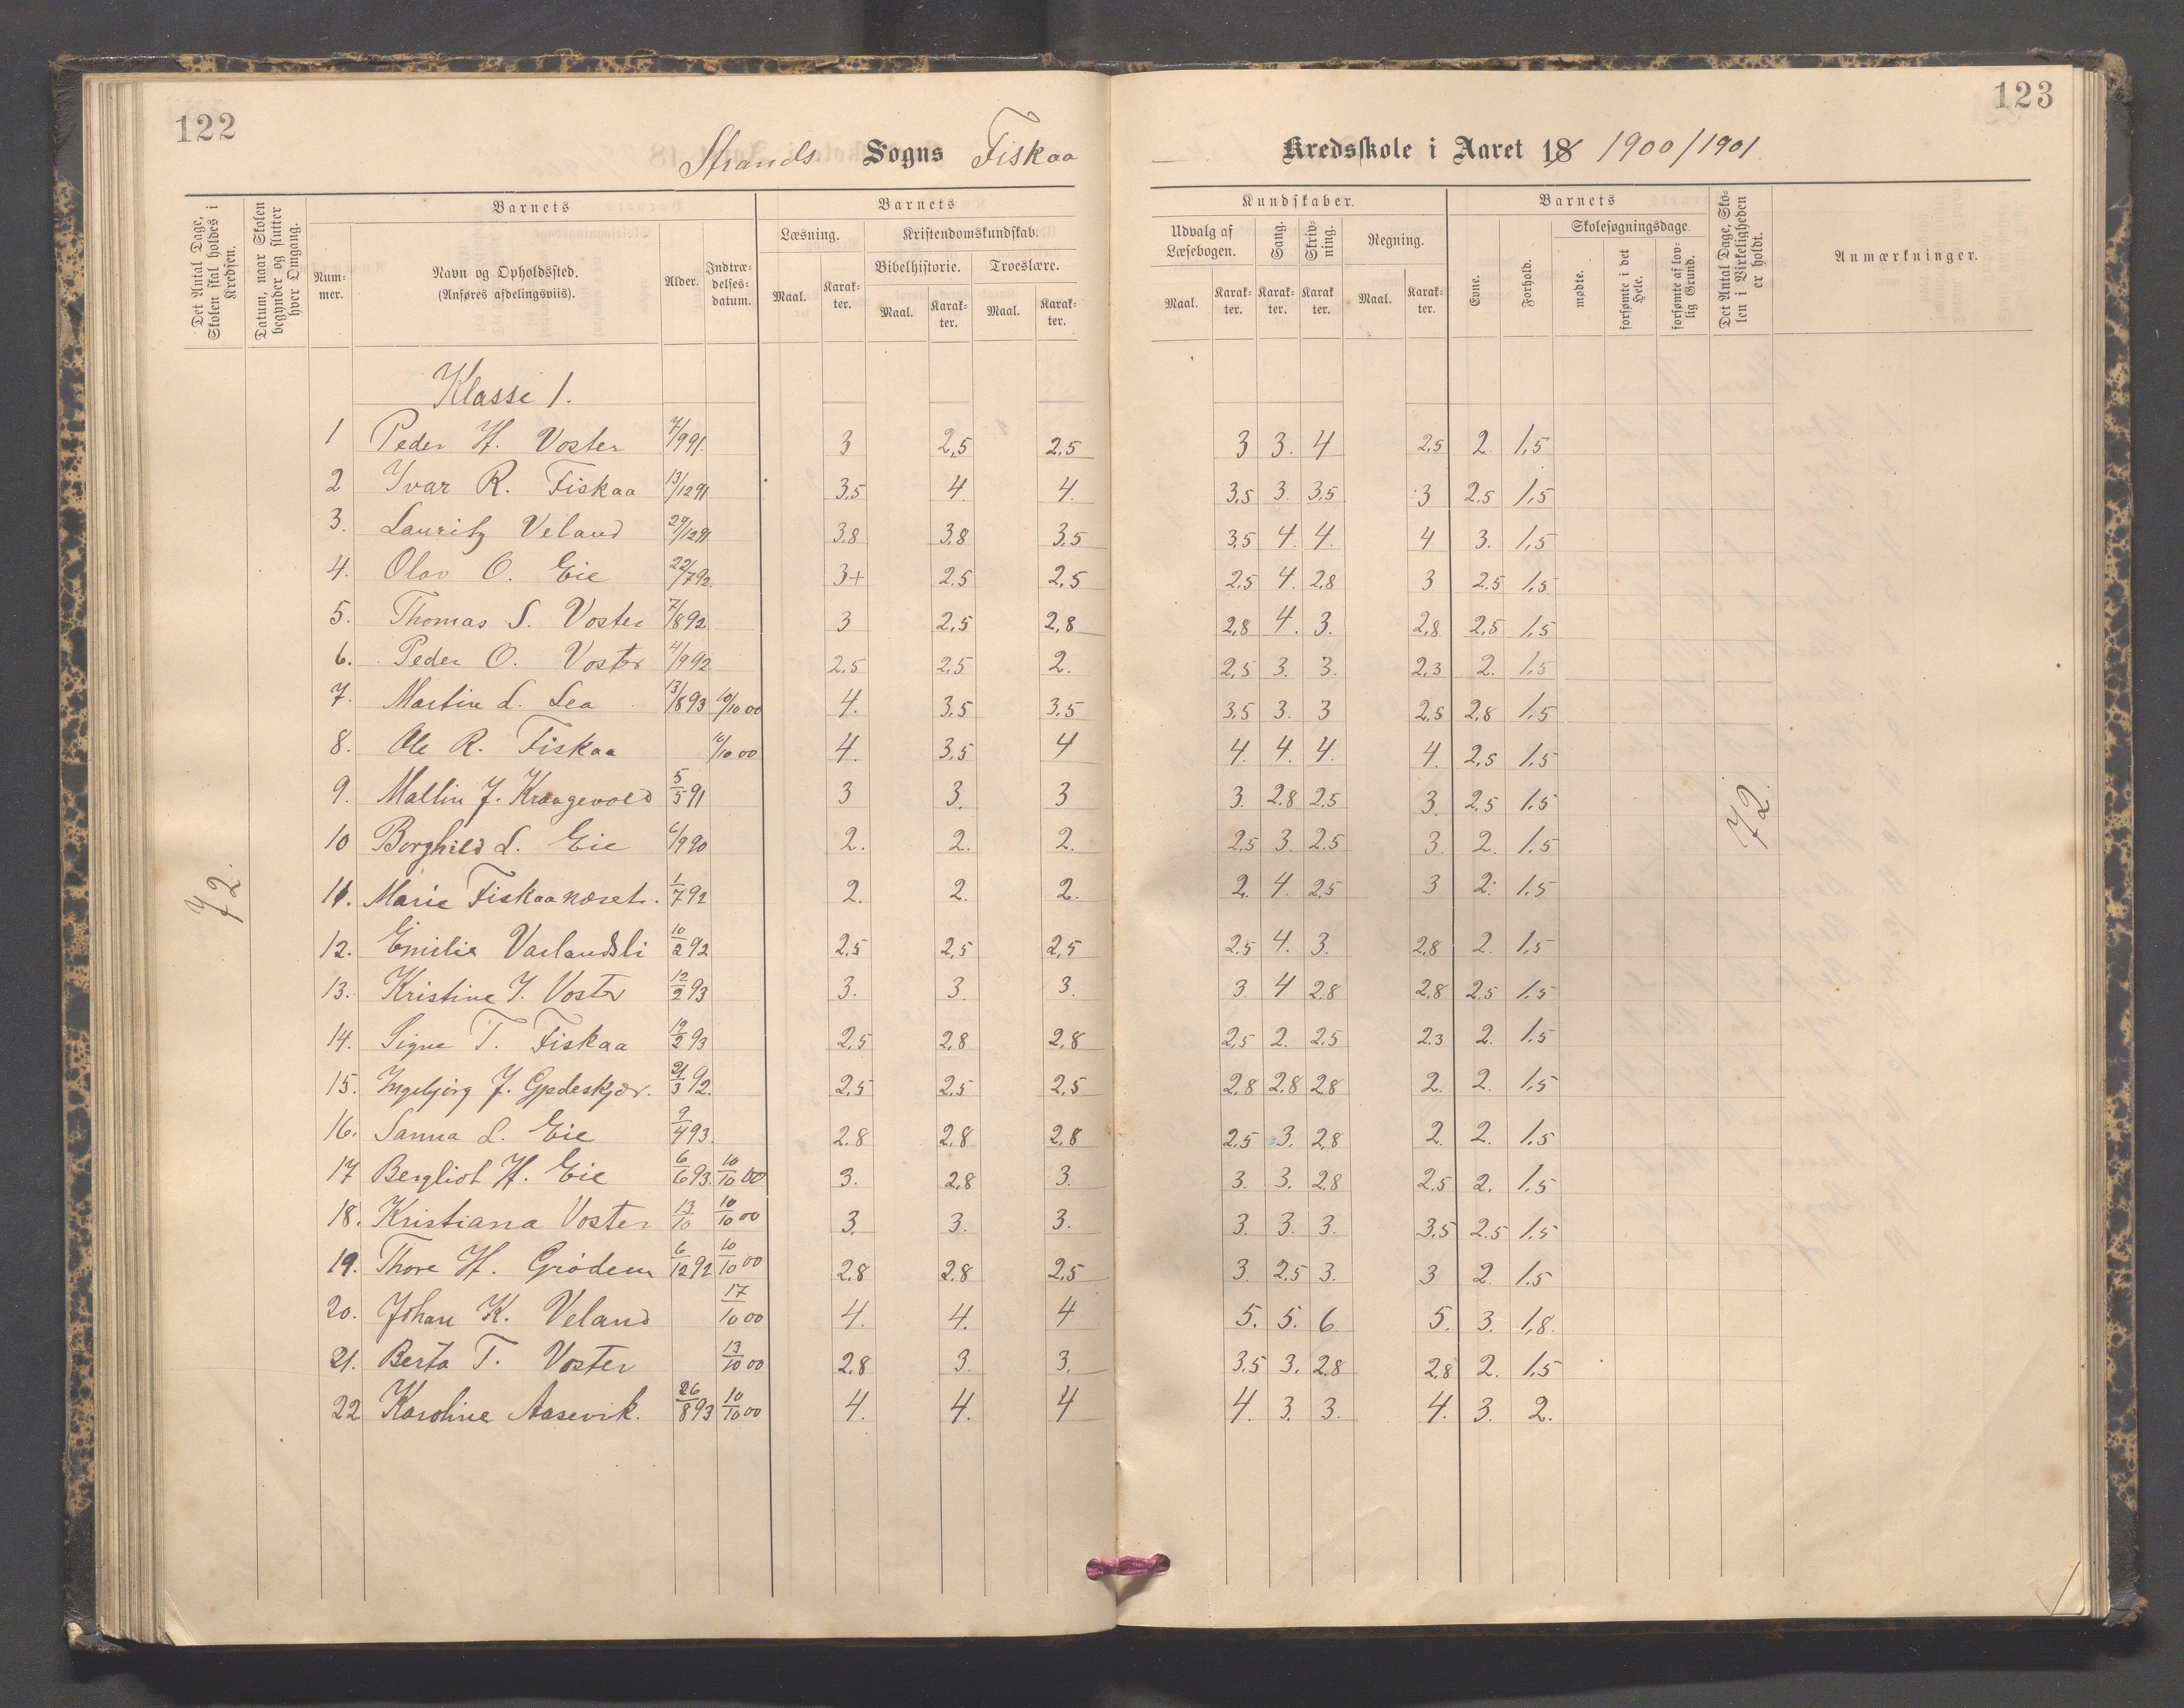 122
123
Strands Sogns Fiskaa Kredsskole i Aaret 18 1900/1901.
Det Antal Dage, Skolen skal holdes i Kredsen.
Datum, naar Skolen begynder og slutter hver Omgang.
Barnets
Num-
mer.
Navn og Opholdssted.
(Anføres afdelingsviis).
Alder.
Indtræ-
delses-
datum.
Barnets
Læsning.
Maal.
Karak-
ter.
Kristendomskundskab.
Bibelhistorie.
Maal.
Karak-
ter.
Troeslære.
Maal.
Karak-
ter.
Kundskaber.
Udvalg af
Læsebogen.
Maal.
Karak-
ter.
Sang.
Karak-
ter.
Skriv-
ning.
Karak
ter.
Regning.
Maal.
Karak-
ter.
Barnets
Evne.
Forhold.
Skolesøgningsdage.
mødte.
forsømte i det Hele.
forsømte af lov-
lig Grund.
Det Antal Dage, Sko-
len i Virkeligheden
er holdt.
Anmærkninger.
Klasse 1.
1 Peder H. Voster 7/9 91. 3 2,5 2,5 3 3. 4 2,5 2. 1,5
2 Ivar R. Fiskaa 13/12 91 3,5 4. 4. 3,5 3. 3,5 3 2,5 1,5
3. Lauritz Veland 29/12 91 3,8 3,8 3,5 3,5 4. 4. 4 3. 1,5
4. Olav O. Eie 22/7 92. 3+ 2,5 2,5 2,5 4. 2,8 3 2.5 1,5
5. Thomas S. Voster 7/8 92 3 2,5 2,8 2,8 4. 3. 2,8 2,5 1,5
6. Peder O. Voster 4/9 92 2,5 2,5 2. 2,5 3. 3. 2,3 2. 1,5
7. Martin L. Lea 13/8 93 10/10 00 4. 3,5 3,5 3,5 3. 3 2,5 2,8 1,5
8. Ole R. Fiskaa 10/10 00 4. 3,5 4 4. 4. 4. 4. 2,5 1,5
9. Mallin J. Kraagevold 5/5 91 3 3. 3 3. 2.8 2,5 3. 2,5 1.5
10 Borghild L. Eie 6/9 90 2. 2. 2. 2,5 3. 2.5 3. 2. 1.5
11. Marie Fiskaanæset. 1/7 92 2. 2. 2. 2. 4. 2,5 3 2. 1.5
12. Emilie Varlandsli 10/2 92 2,5 2,5 2,5 2,5 4. 3. 2,8 2. 1,5
13. Kristine J. Voster 12/2 93 3. 3. 3. 3. 4 2,8 2,8 2.5 1.5
14. Signe T. Fiskaa 12/2 93 2,5 2,8 2,8 2,5 2. 2,5 2.3 2. 1.5
15. Ingebjørg J. Gjedeskjær. 21/3 92. 2,5 2.5 2,5 2,8 2,8 2,8 2. 2. 1,5
16. Sanna L. Eie 9/4 93. 2.8 2,8 2,8 2,5 3. 2,8 2. 2. 1.5
17 Bergliot H. Eie 6/6 93. 10/10 00 3. 2,8 3. 3. 3. 2,8 2,5 2. 1.5
18. Kristiana Voster 13/10 10/10 00 3. 3. 3. 3. 3. 3. 3,5 2.5 1.5
19. Thore H. Grødem 6/12 92 10/10 00 2,8 2,8 2,5 3. 2.5 3. 3 2. 1.5
20. Johan K. Veland 17/10 00 4. 4. 4 5. 5. 6. 5. 3. 1,8.
21. Berta T. Voster 13/10 00 2,8 3. 3. 3.5 3. 2.8 2,8 2. 1.5
22 Karoline Aasevik. 26/8 93 10/10 00 4. 4. 4 4. 3. 3. 4. 3. 2.
72.
72.